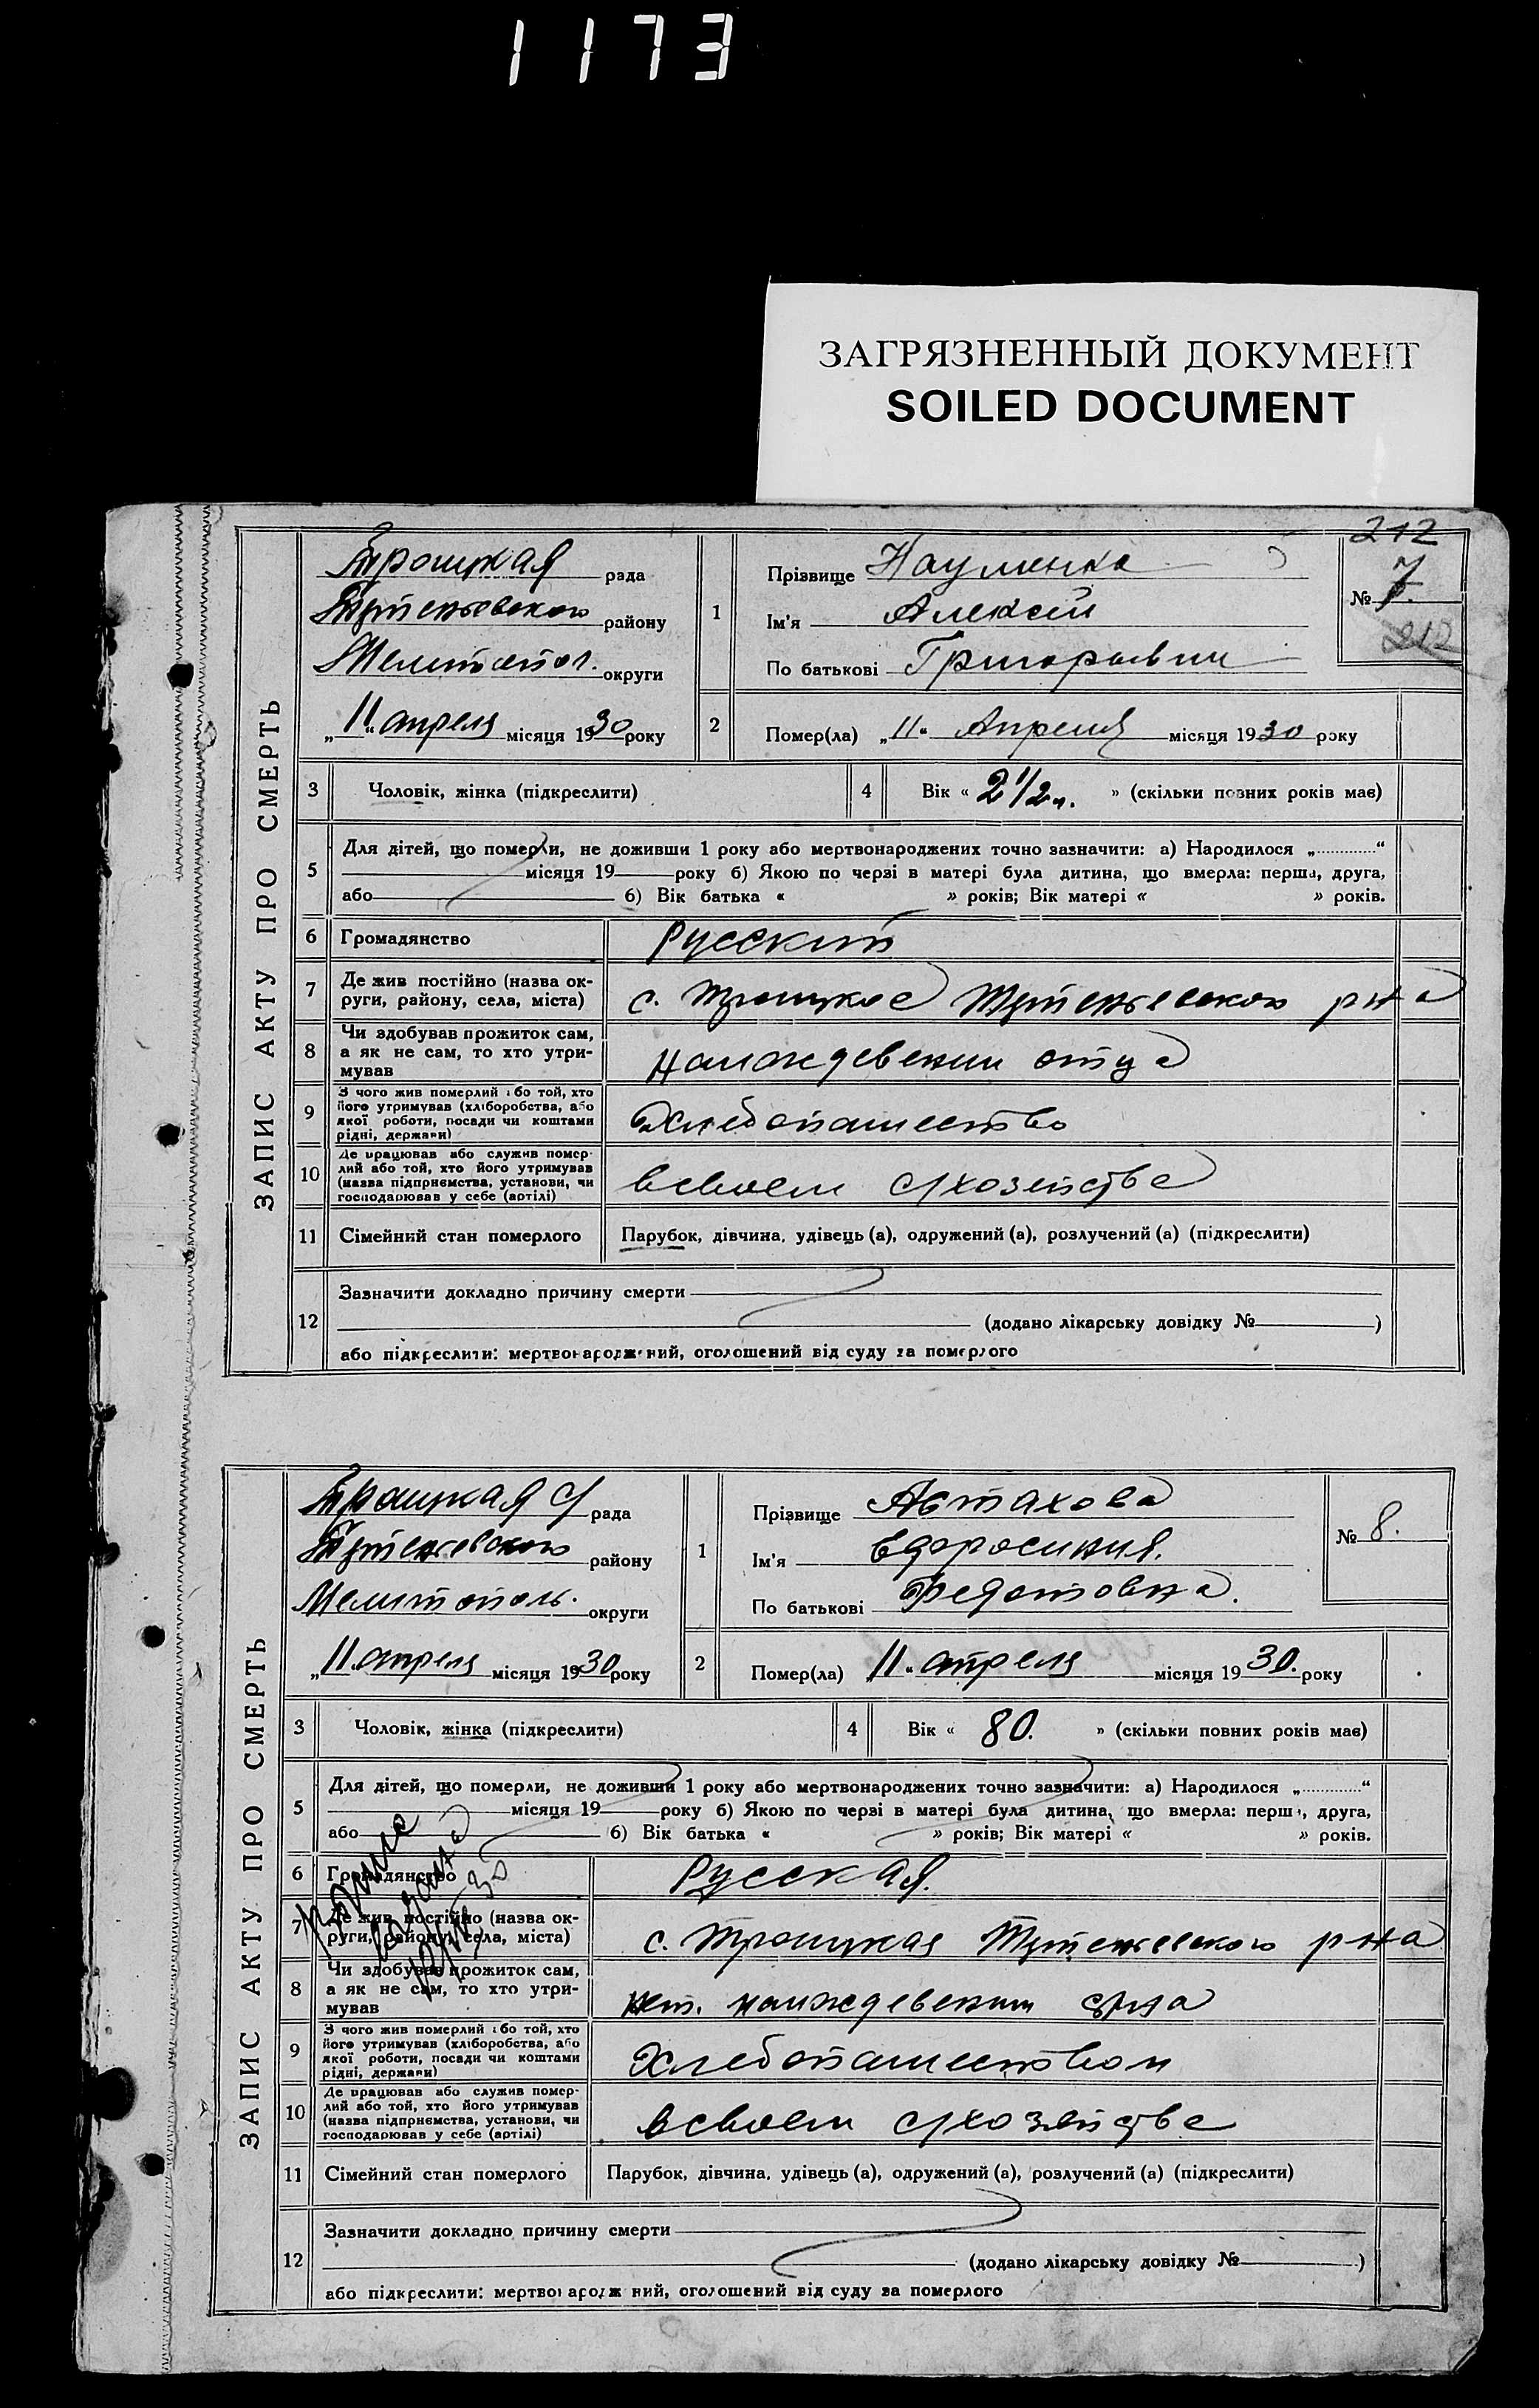 1173
ЗАГРЯЗНЕННЫЙ ДОКУМЕНТ
SOILED DOCUMENT
ЗАПИС АКТУ ПРО СМЕРТЬ
212
Троицкая рада
району
Мелитопол. округи
„11“ апреля місяця 1930 року
1
Прізвище Науменко
Ім'я Алексей
По батькові Григорьевич
№ 7.
212
2
Помер(ла) „11“ Апреля місяця 1930 року
3
Чоловік, жінка (підкреслити)
4
Вік « 2 1/2 » (скільки повних років має)
5
Для дітей, що померли, не доживши 1 року або мертвонароджених точно зазначити: а) Народилося „ “
місяця 19 року б) Якою по черзі в матері була дитина, що вмерла: перша, друга,
або б) Вік батька « » років; Вік матері « » років.
6
Громадянство
Русский
7
Де жив постійно (назва ок-
руги, району, села, міста)
с. Троицкое р-на
8
Чи здобував прожиток сам,
а як не сам, то хто утри-
мував
на иждевении отца
9
З чого жив померлий або той, хто
його утримував (хліборобства, або
якої роботи, посади чи коштами
рідні, держави)
Хлебопашество
10
Де працював або служив помер-
лий або той, хто його утримував
(назва підприємства, установи, чи
господарював у себе (артілі)
в своем с/хозяйстве
11
Сімейний стан померлого
Парубок, дівчина, удівець (а), одружений (а), розлучений (а) (підкреслити)
12
Зазначити докладно причину смерти
(додано лікарську довідку № )
або підкреслити: мертвонароджений, оголошений від суду за померлого
ЗАПИС АКТУ ПРО СМЕРТЬ
Троицкая с/ рада
району
Мелитополь. округи
„11. апреля місяця 1930 року
1
Прізвище Астахова
Ім'я Ефросиния.
По батькові Федотовна.
№ 8.
2
Помер(ла) „11“ апреля місяця 1930. року
3
Чоловік, жінка (підкреслити)
4
Вік « 80. » (скільки повних років має)
5
Для дітей, що померли, не доживши 1 року або мертвонароджених точно зазначити: а) Народилося „ “
місяця 19 року б) Якою по черзі в матері була дитина, що вмерла: перша, друга,
або б) Вік батька « » років; Вік матері « » років.
6
Громадянство
Русская.
7
Де жив постійно (назва ок-
руги, району, села, міста)
с. Троицкая р-на
8
Чи здобував прожиток сам,
а як не сам, то хто утри-
мував
нет. на иждевении сына
9
З чого жив померлий або той, хто
його утримував (хліборобства, або
якої роботи, посади чи коштами
рідні, держави)
Хлебопашеством
10
Де працював або служив помер-
лий або той, хто його утримував
(назва підприємства, установи, чи
господарював у себе (артілі)
в своем с/хозяйстве
11
Сімейний стан померлого
Парубок, дівчина, удівець (а), одружений (а), розлучений (а) (підкреслити)
12
Зазначити докладно причину смерти
(додано лікарську довідку № )
або підкреслити: мертвонароджений, оголошений від суду за померлого